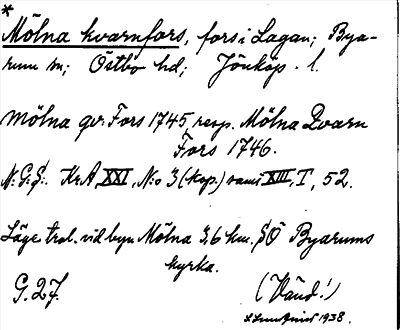 *
Mölna kvarnfors, fors i Lagan; Bya-
rum sn; Östbo hd; Jönköp. l.
Mölna qv. Fors 1745, resp. Mölna Qvarn
Fors 1746.
N:G:S:. Kr.A. XXI, N:o 3 (kop.) samt XIII, I, 52.
Läge trol. vid byn Mölna 3,6 km. SÖ Byarums
kyrka.
G.27.
(Vänd!)
1938.